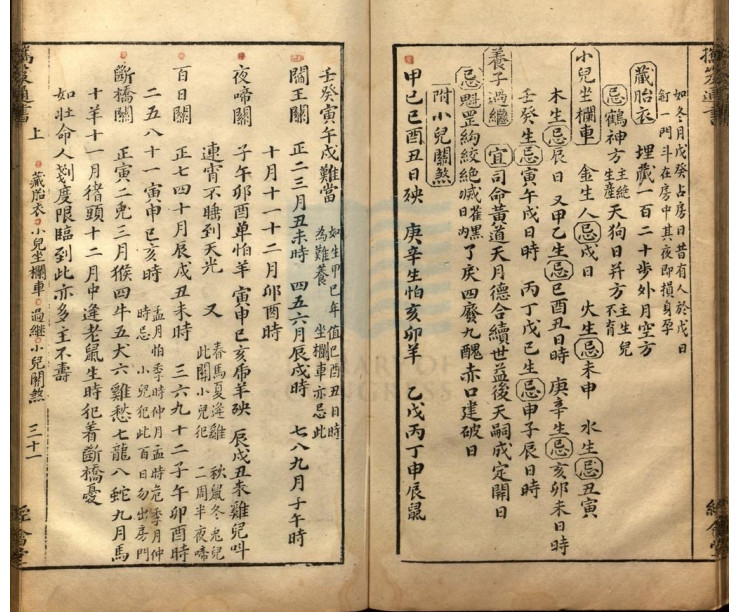 如冬月戊癸占房日昔有人於戊日
釘一門斗在房中其夜即損身孕
藏胎衣 埋藏一百二十步外月空方
忌鶴神方主絶生產天狗日并方主生兒不育
小兒坐欄車 金生人忌戌日 火生忌未申 水生忌丑寅
木生忌辰日 又甲乙生忌巳酉丑日時 庚辛生忌亥卯未日時
壬癸生忌寅午戌日時 丙丁戊己生忌申子辰日時
養子過繼 宜司命黄道天月德合續世益後天嗣成定開日
忌魁罡絇絞絶滅日 了戾四廢九醜赤口建破日
附小兒關煞
甲己巳酉丑日殃 庚辛生怕亥卯羊 乙戊丙丁申辰鼠
壬癸寅午戌難當 如生甲巳年值巳酉丑日時為難養 坐欄車亦忌此
閻王關 正二三月丑未時 四五六月辰戌時 七八九月子午時
十月十一十二月卯酉時
夜啼關 子午卯酉单怕羊 寅申巳亥虎羊殃 辰戌丑未雞兒叫
連宵不睡到天光 又 春馬夏逢雞 秋鼠冬兎兒 此關小兒犯 二周半夜啼
百日關 正七四十月辰戌丑未時 三六九十二子午卯酉時
二五八十一寅申巳亥時 孟月怕季時仲月孟時危季月仲時忌 小兒犯此百日勿出房門
斷橋關 正寅二兎三月猴四牛五犬六雞愁七龍八蛇九月馬
十羊十一月猪頭十二月中逢老鼠生時犯着斷橋憂
如壯命人剗度限臨到此亦多主不壽
上 藏胎衣 小兒坐欄車 過繼 小兒關煞 三十一
經畬堂